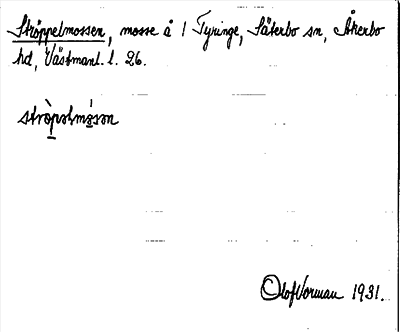 Ströppelmossen, mosse å 1 Tyringe, Säterbo sn, Åkerbo
hd, Västmanl. l. 26.
stròpəlmɵ̀sən
Olof Vorman 1931.